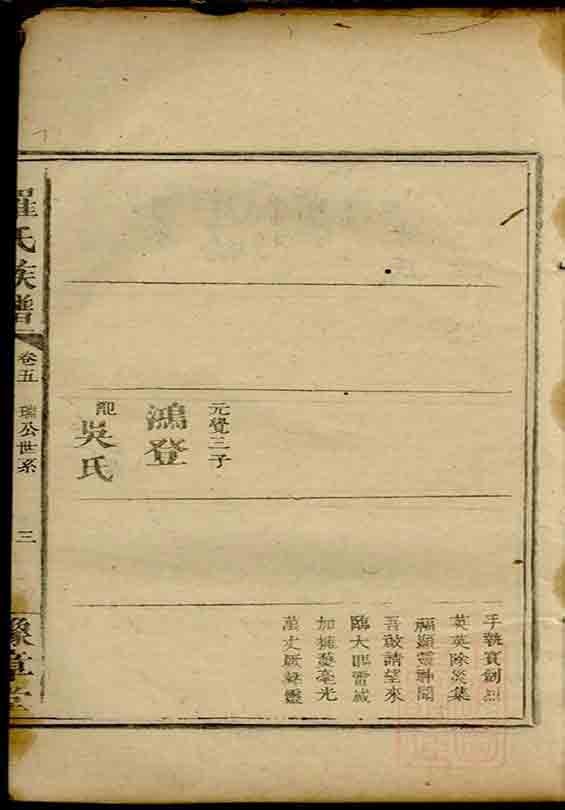 元覺三子
鴻登
配
吳氏
手執寶劍烈
英英除災集
福顯靈神聞
吾敢請望來
臨大叩雷威
加擁護毫光
萬丈厥聲靈
羅氏族譜
卷五
瑞公世系
三
豫章堂